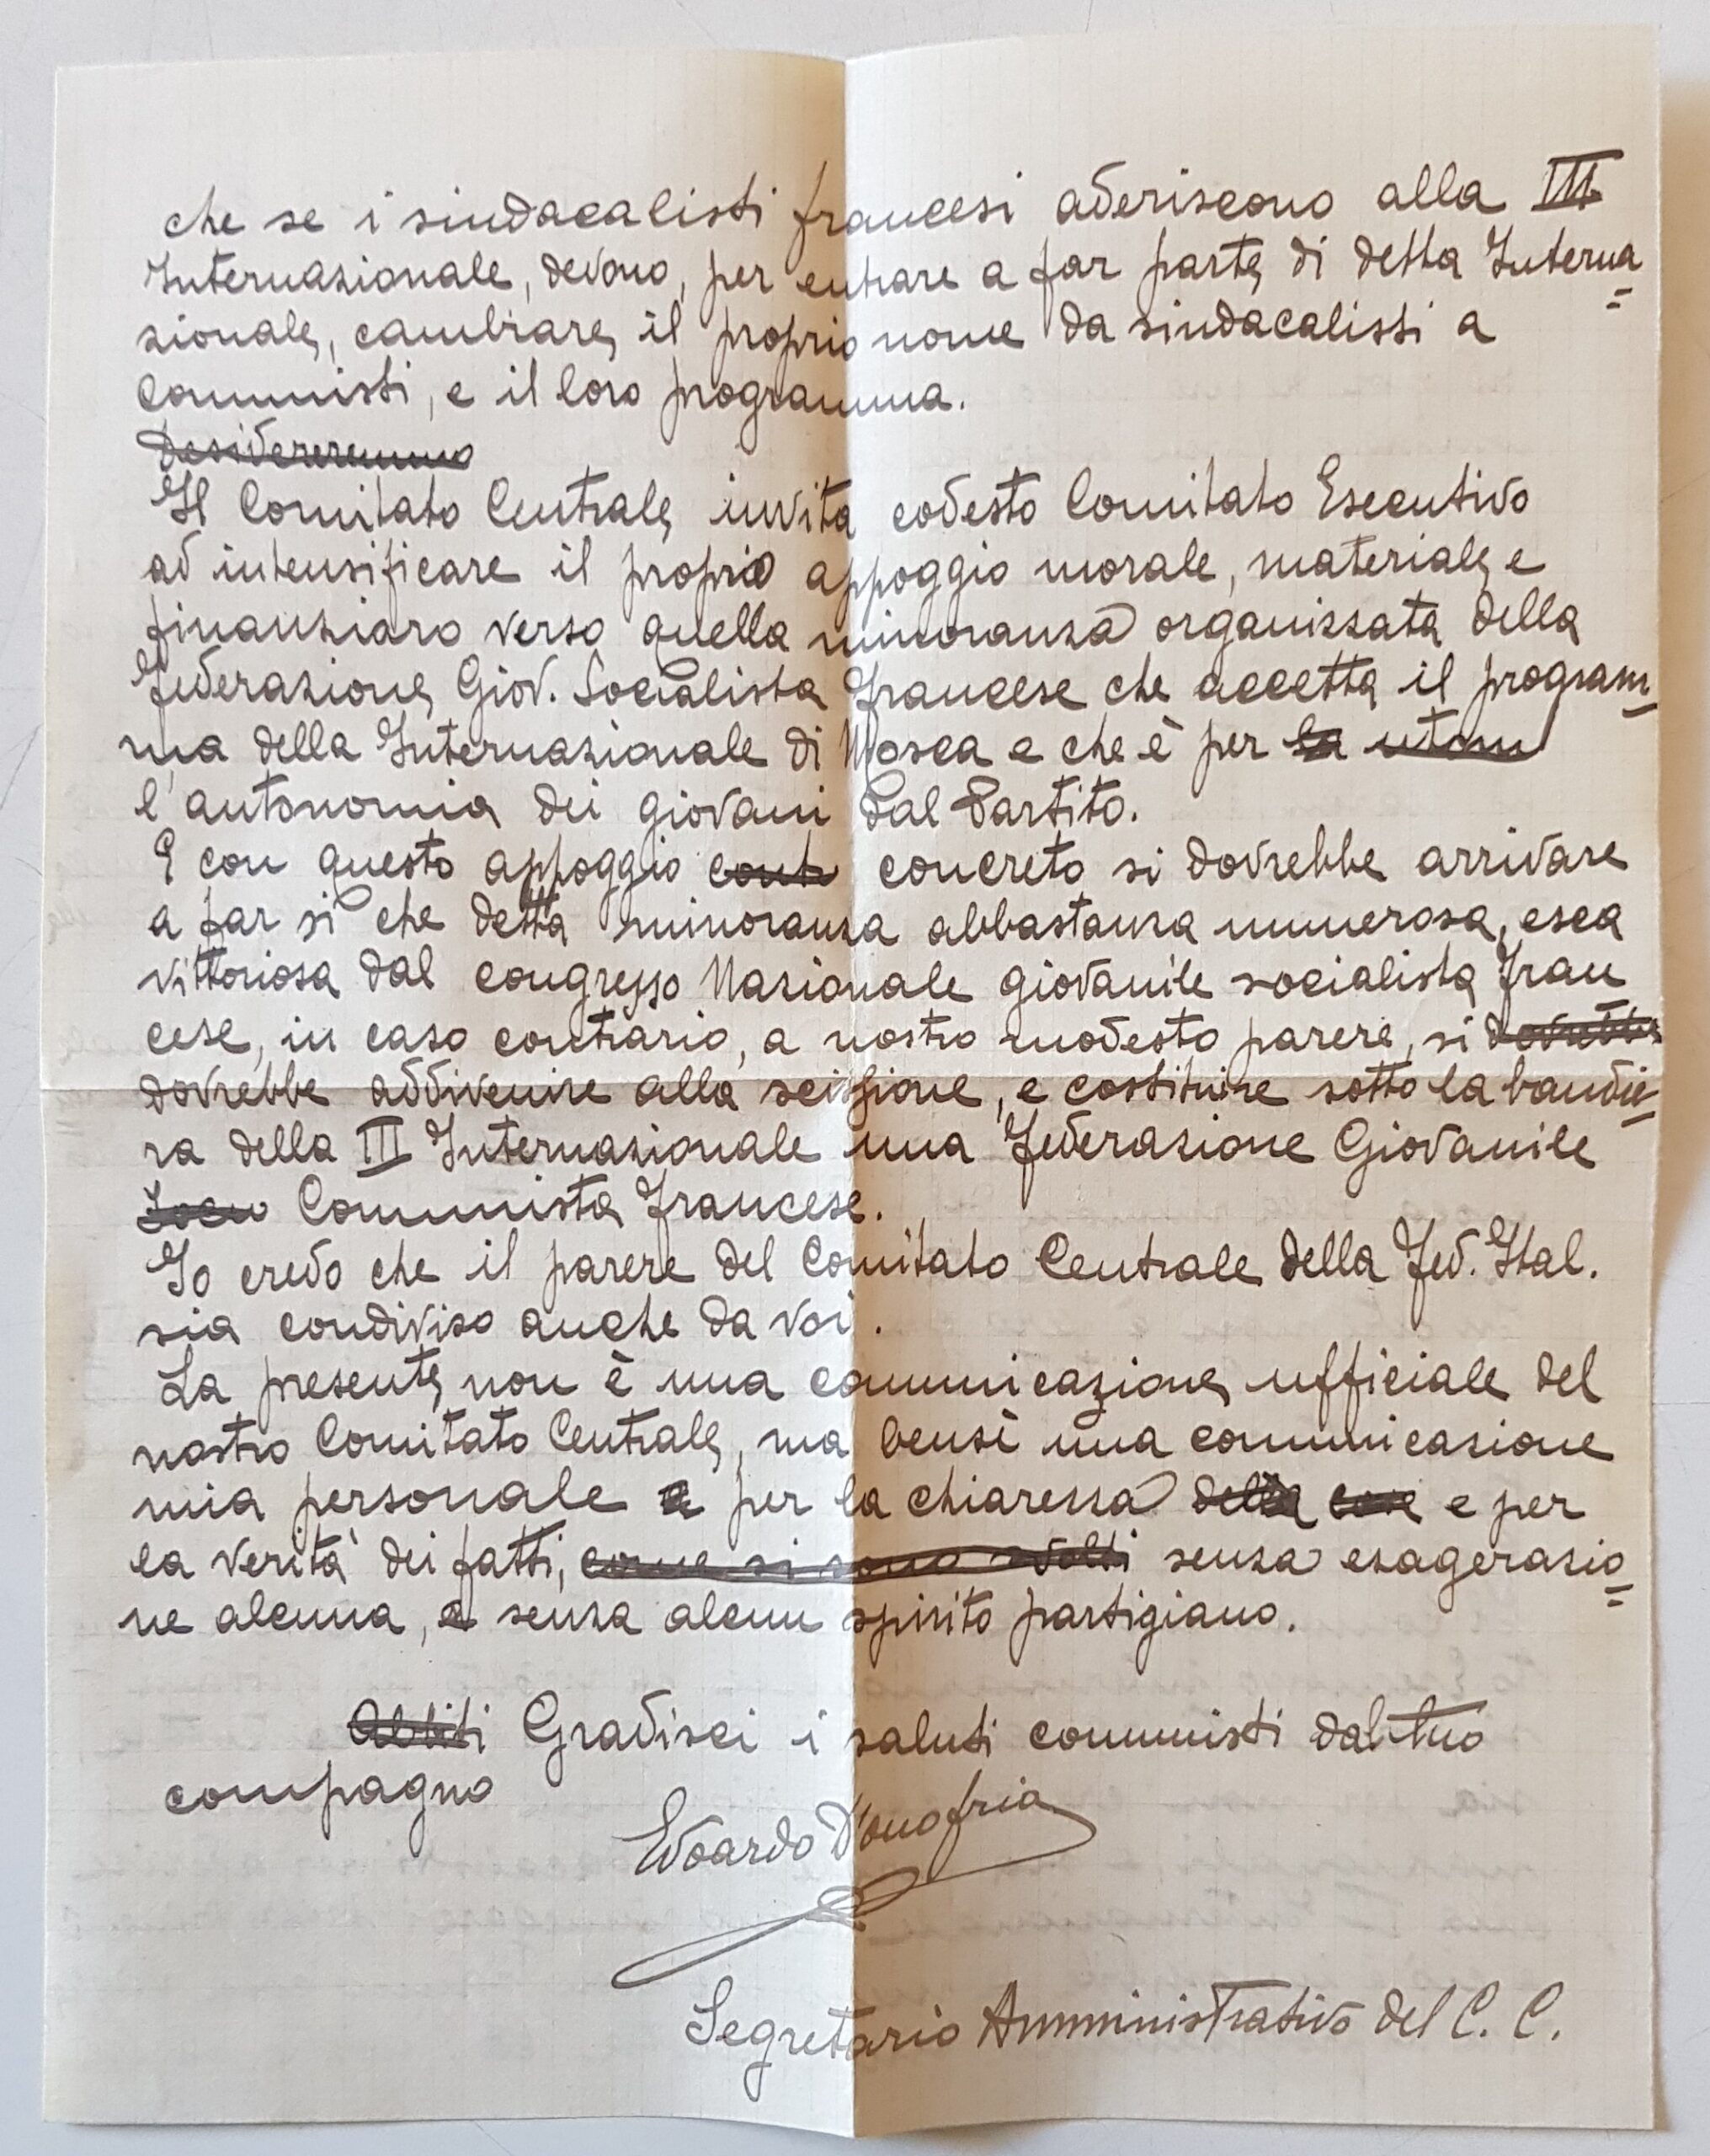 che se i sindacalisti francesi aderiscono alla III
Internazionale, devono, per entrare a far parte di detta Interna=
zionale, cambiare il proprio nome da sindacalisti a
Communisti, e il loro programma.
Desidereremmo
Il Comitato Centrale invita codesto Comitato Esecutivo
ad intensificare il proprio appoggio morale, materiale e
finanziaro verso quella minoranza organizzata della
Federazione Giov. Socialista Francese che accetta il program-
ma della Internazionale di Mosca e che è per la
l'autonomia dei giovani dal Partito.
E con questo appoggio concreto si dovrebbe arrivare
a far si che detta minoranza abbastanza numerosa, esca
vittoriosa dal congresso Nazionale giovanile socialista Fran
cese, in caso contrario, a nostro modesto parere, si dovrebbe
dovrebbe addivenire alla scissione, e costituire sotto la bandie-
ra della III Internazionale una Federazione Giovanile
Communista Francese.
Io credo che il parere del Comitato Centrale della Fed. Ital.
sia condiviso anche da voi.
La presente non è una communicazione ufficiale del
nostro Comitato Centrale, ma bensì una communicazione
mia personale e per la chiarezza della cose e per
la verità dei fatti, come si sono svolti senza esagerazio=
ne alcuna, e senza alcun spirito partigiano.
Gradisci i saluti communisti dal tuo
compagno
Edoardo D'Onofrio
Segretario Amministrativo del C. C.